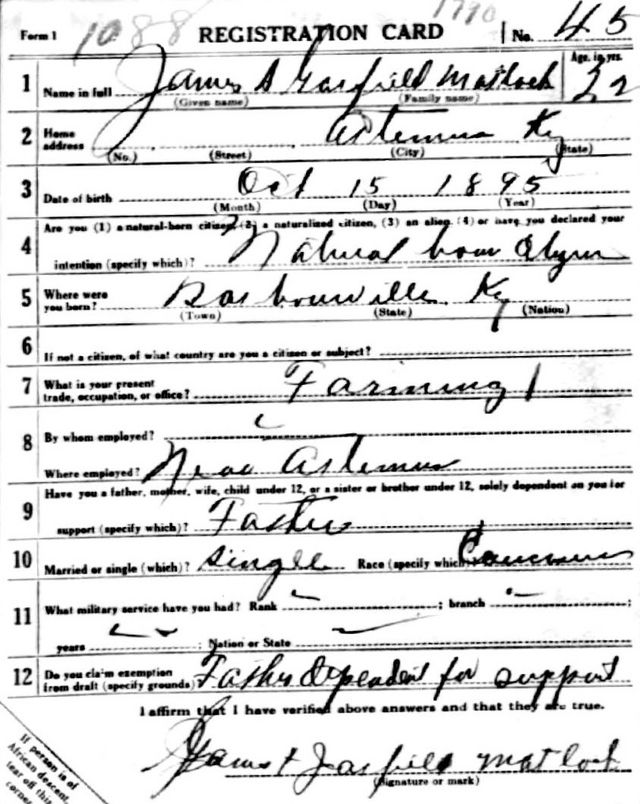 Form 1 1088 REGISTRATION CARD 1790 No. 45
1 Name in full James A Garfield Matlock Age, in yrs. 22
(Given name) (Family name)
2 Home address Artemus Ky
(No.) (Street) (City) (State)
3 Date of birth Oct 15 1895
(Month) (Day) (Year)
Are you (1) a natural-born citizen, (2) a naturalized citizen, (3) an alien, (4) or have you declared your
4 intention (specify which)? Natural born
5 Where were you born? Barbourville Ky
(Town) (State) (Nation)
6 If not a citizen, of what country are you a citizen or subject?
7 What is your present trade, occupation, or office? Farming
8 By whom employed?
Where employed? Near Artemus
Have you a father, mother, wife, child under 12, or a sister or brother under 12, solely dependent on you for
9 support (specify which)? Father
10 Married or single (which)? Single Race (specify which)
11 What military service have you had? Rank ; branch ;
years ; Nation or State
12 Do you claim exemption from draft (specify grounds) Father dependent for support
I affirm that I have verified above answers and that they are true.
James A Garfield Matlock
(Signature or mark)
If person is of
African descent,
tear off this
corner